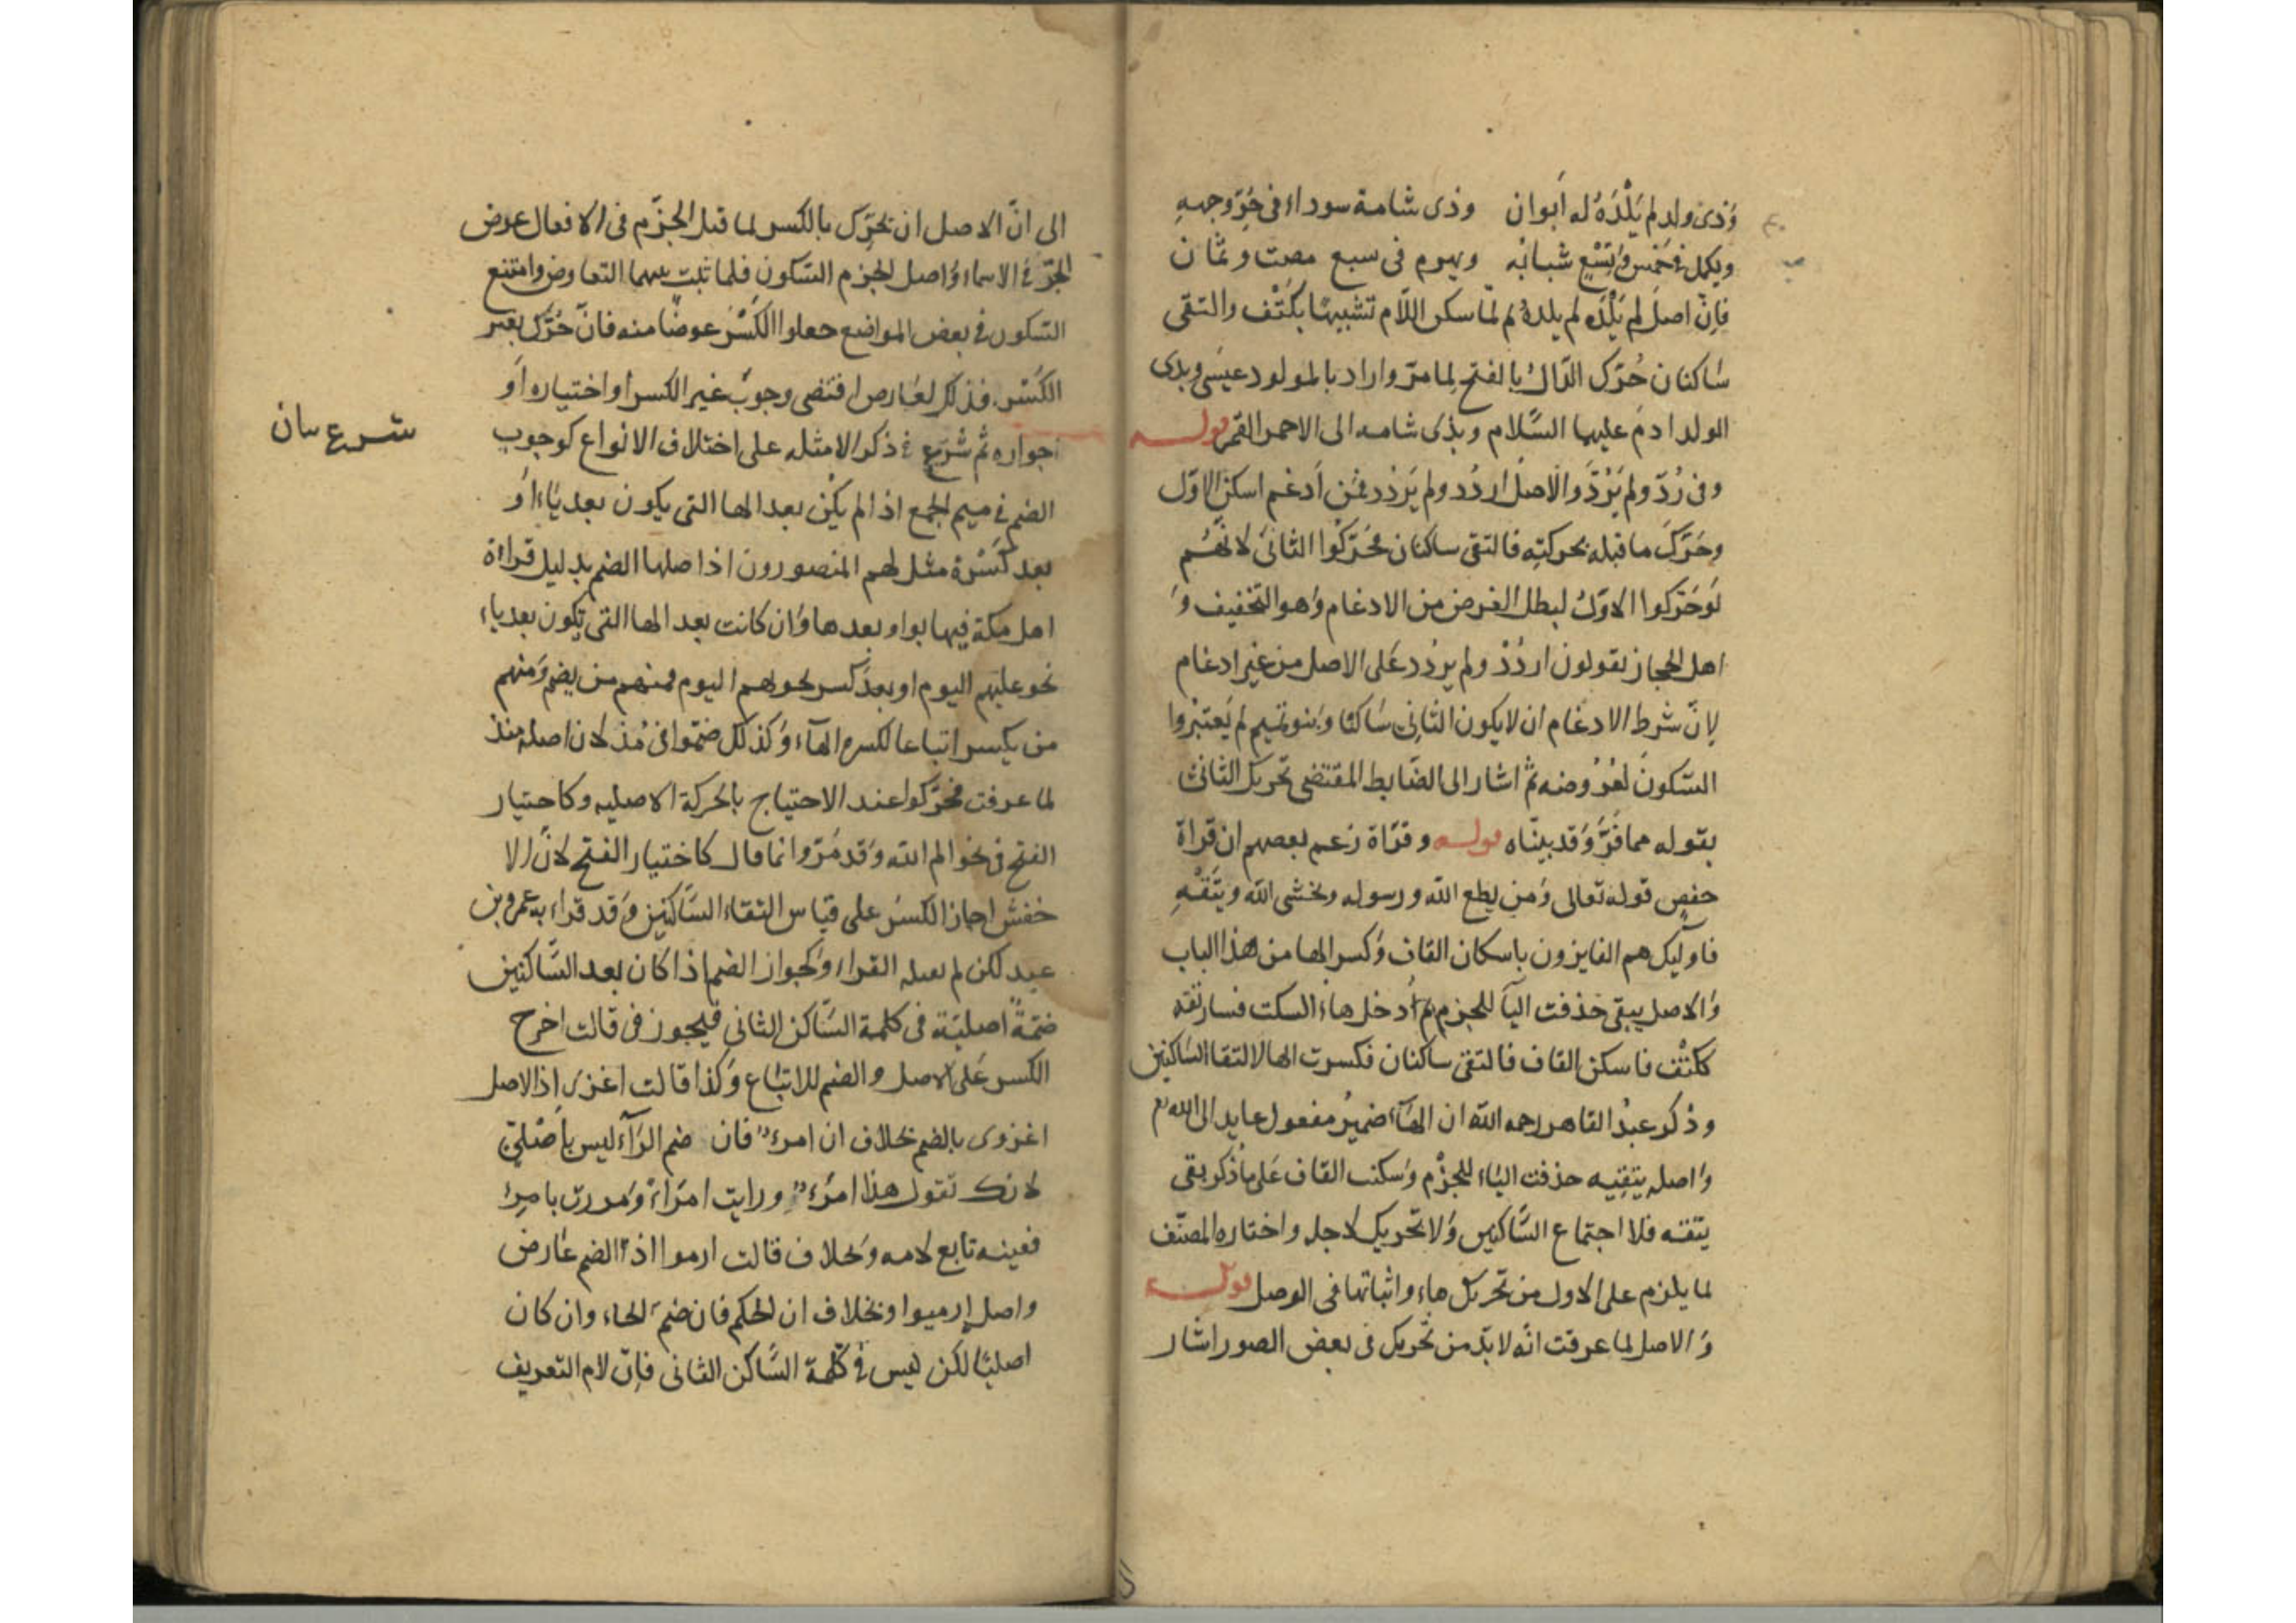 وَذى ولد لم يَلْدَهُ له أبوان وذى شامة سوداء فى حُرِّ وجهِهِ
ويكمل فى خَمْس وَتِسْعٍ شبابُه ويهرم فى سبع مصت وثمان
فاِنّ اصلَ لم يَلْدَه لم يلدهُ ثم لمّا سكن اللّام تشبيهًا بكَتْف والتقى
سَاكنان حُرّك الدّالُ بالفتح لِما مرّ واراد بالمولود عيسَى وبذى
الولد ادمَ عليهما السَّلام وبذى شامه الى الاحمر القمر قولـــه
وفى رُدّ ولم يَرُدَّ وَالاَصلُ اردُد ولم يَردُد فمَن اَدغم اسكن الاوّل
وحَرّكَ ما قبله بحركتِهِ فالتقى ساكنان محَرّكُوا الثانىَ لانّهُم
لَوحَرّكوا الاوّلُ لبطل الغرض من الادغام وَهو التخفيف وَ
اهل الحجاز يقولون اردُدْ ولم يردُد عَلى الاصل من غير ادغام
لِانّ شرط الادغام ان لايكون الثانِى سَاكنًا وَبنو تميم لم يَعتبرُوا
السّكونَ لعُرُوضه ثمّ اشار الى الضّابط المقتضى تحريكَ الثانى
بقوله مما فَرَّ وَقد بينّاه قولــه وقرّاة زعم بعصهم ان قراة
حفصٍ قوله تعالى وَمن يطع الله ورسوله ويخشى الله ويتَّقْهِ
فاوليك هم الفايزون باسكان القاف وَكسر الها من هذا الباب
وَالاصل يبقى حَذفت اليآ للجزم ثم اُدخل هاءُ السكت فسار تقه
ككتْف فاسكن القاف فالتقى ساكنان فكسرت الها لالتقا السّاكنين
وذكر عبدُ القاهر رحمه الله ان الهَآءَ ضميرُ مفعول عايد الى الله تع
وَاصله يتقِيه حذفت اليَاء للجزْم وَسكنت القاف عَلى ماذكر بقى
يتقه فلا اجتماع السَّاكنين وَلا تحريك لاجله واختاره المصنّف
لما يلزم على الاول من تحريك هاء واثباتها فى الوصل قولــــه
وَالاصل لما عرفت انّه لابدّ من تحريك فى بعض الصور اشار
الى انّ الاصل ان تحرّك بالكسر لما قبل الجزّم فى الافعال عوض
الجرّ فى الاسماء وَاصل الجزم السّكون فلما ثبت بينهما التعاوض وامتنع
السّكون فى بعض المواضع جعلوا الكسْرَ عوضًا منه فانّ حُرّك بغير
الكسْر فذلك لعَارض اقتضى وجوبَ غير الكسر او اختياره اَو
جوازه ثم شرَعَ فى ذكر الامثله على اختلاف الانواع كوجوب
الضم فى ميم الجمع اذا لم يكن بعد الها التى يكون بعد يَاء اَو
بعد كسْرة مثل لهم المنصورون اذ اصلها الضم بدليل قراءة
اهل مكة فيها بواو بعدها وَان كانت بعد الها التى تكون بعد ياء
نحو عليهم اليوم او بعدَ كسر نحو بهم اليوم فمنهم من يضم وَمنهم
من يكسر اتباعا لكسره الهآء وَكذلك ضمّوا فى مُذ لان اصله منذ
لما عرفت محرَّكوا عند الاحتياج بالحركة الاصليه وكاحتيار
الفتح فى نحو الم الله وَقد مَرّ وانما قال كاختيار الفتح لانّ الا
خفش اجاز الكسْرَ على قيَاس التقاء السَّاكنين وَقد قراء به عمرو بن
عبيد لكن لم يقبله القراء وَكجواز الضم اذا كان بعد السَّاكنين
ضمّةً اصليّة فى كلمة السّاكن الثانى فيجوز فى قالت اخرج
الكسر عَلى الاصل والضم للاتبَاع وَكذا قالت اغزى اذ الاصل
اغزوى بالضم بخلاف ان امرءٌ فان ضم الرَآء ليس باَصْليّ
لانك تقول هذا امرُءٌ ورايت امرَاءً وَمررت بامرِء
فعينه تابع لامه وَبخلاف قالت ارموا اذ الضم عَارض
واصله اِرميوا وبخلاف ان الحكم فان ضمَ الحاء وان كان
اصليًا لكن ليس فى كلمة السَّاكن الثانى فاِنّ لام التعريف
شرع بيان